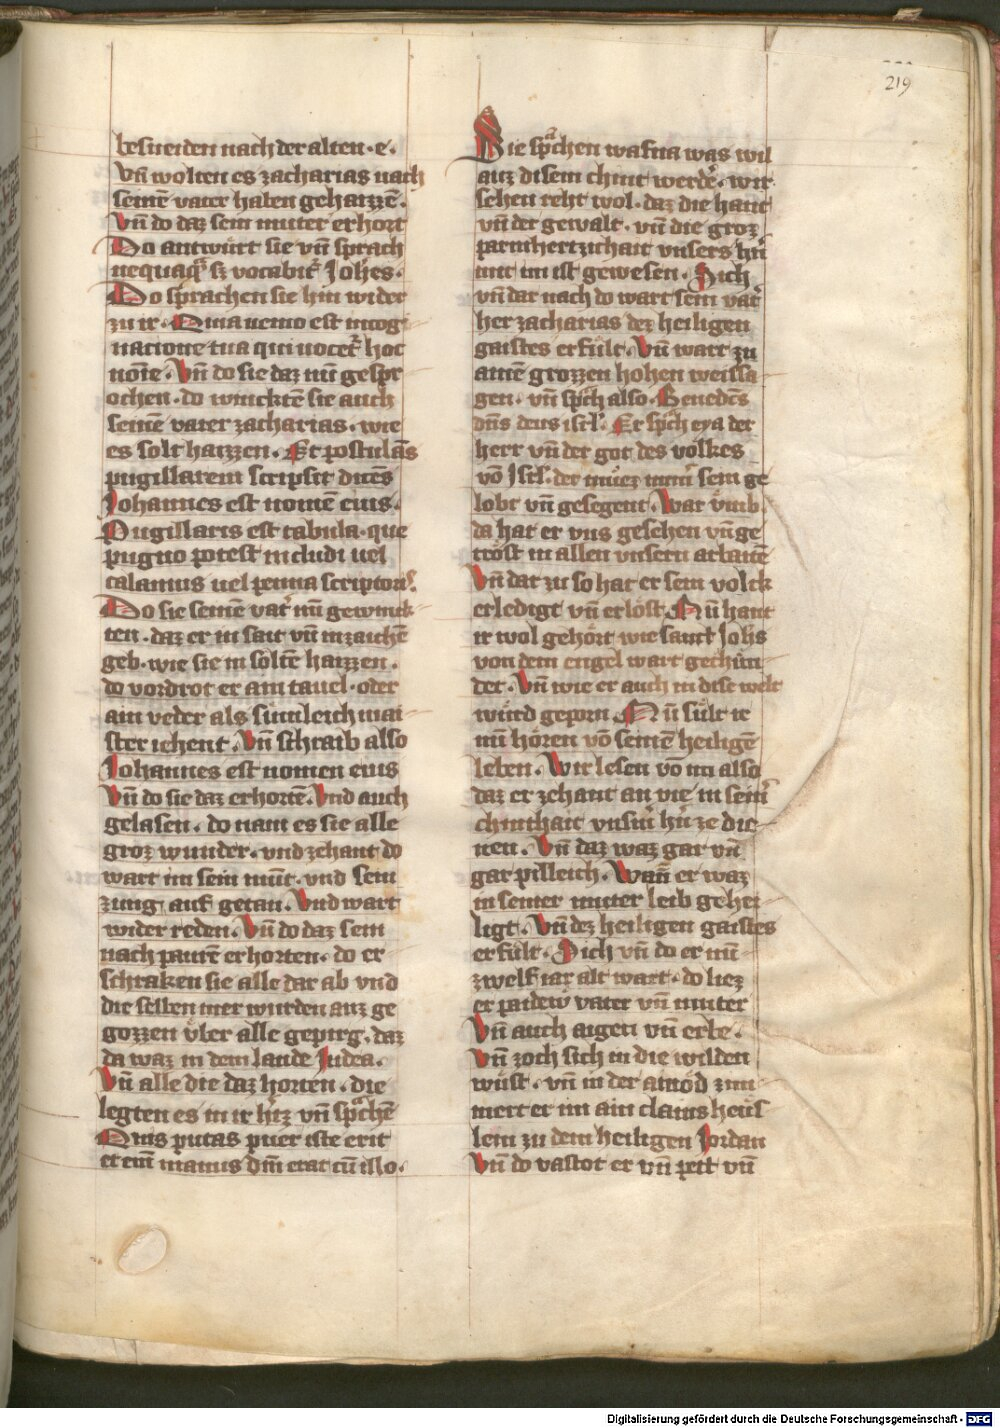 219
besneiden nach der alten · e ·
vn̄ wolten es zacharias nach
seinē vater haben gehaizzē ·
Vn̄ do daz sein muter erhort
Do antwurt sie vn̄ sprach
nequaqͣ sꝫ vocabitᷣ Joh̄es ·
Do sprachen sie hin wider
zu ir · Quia nemo est in cog
nacione tua qui uocetᷣ hoc
noīe · Vn̄ do sie daz nu gespr
ochen · do wincktē sie auch
seinē vater zacharias · wie
es solt haizzen · Et postulās
pugillarem scripsit dicēs
Johannes est nomē eius ·
Pugillaris est tabula · que
pugno potest includi uel
calamus uel penna scriptoris ·
Do sie seinē vatᷣ nu gewinck
ten · daz er in sait vn̄ inzaichē
geb · wie sie in soltē haizzen ·
do vordrot er ain tauel · oder
ain veder als sumleich mai
ster iehent · Vn̄ schraib also
Johannes est nomen eius
Vn̄ do sie daz erhortē · Vnd auch
gelasen · do nam es sie alle
groz wunder · vnd zehant do
wart im sein mūt · vnd sein
zung auf getan · Vnd wart
wider reden · Vn̄ do daz sein
nach paurē erhorten · do er
schraken sie alle dar ab vnd
die selben mer wurden auz ge
gozzen vͤber alle gepirg · daz
da waz in dem lande Judea ·
Vn̄ alle die daz horten · die
legten es in ir hᷣtz vn̄ spͣchē
Quis putas puer iste erit
et eni manus dn̄i erat cū illo ·
Sie spͣchen wafna was wil
auz disem chint werdē · wir
sehen reht wol · daz die hant
vn̄ der gewalt · vn̄ die groz
parmhertzichait vnsers hᷣn
mit im ist gewesen · Sich
vn̄ dar nach do wart sein vatᷣ
her zacharias dez heiligen
gaistes erfuͤlt · Vn̄ wart zu
ainē grozzen hohen weissa
gen · vn̄ spͣch also · Benedc̄s
dn̄s deus isrl̄ · Er spͣch eya der
herr vn̄ der got des volkes
vō Jsrl̄ · der muͤez im̄ sein ge
lobt vn̄ gesegent · War vmb
da hat er vns gesehen vn̄ ge
troͤst in allen vnsern arbaitē
Vn̄ dar zu so hat er sein volck
erledigt vn̄ erloͤst · Nu hant
ir wol gehoͤrt wie sant Joh̄s
von dem engel wart gechuͤn
det · Vn̄ wie er auch in dise welt
wuͤrd geporn · Nu suͤlt ir
nu hoͤren vō seinē heiligē
leben · Wir lesen vō im also
daz er zehant an vie in seinᷣ
chinthait vnsm̄ hᷣn ze die
nen · Vn̄ daz waz gar vn̄
gar pilleich · Wan̄ er waz
in seiner muter leib gehei
ligt · Vn̄ dez heiligen gaistes
erfuͤlt · Sich vn̄ do er nu
zwelf iar alt wart · do liez
er paidew vater vn̄ muter
Vn̄ auch aigen vn̄ erbe ·
Vn̄ zoch sich in die wilden
wuͤst · vn̄ in der ainoͤd zim
mert er im ain clains heuͤs
lein zu dem heiligen Jordan
Vn̄ do vastot er vn̄ pett vn̄
Digitalisierung gefördert durch die Deutsche Forschungsgemeinschaft - DFG